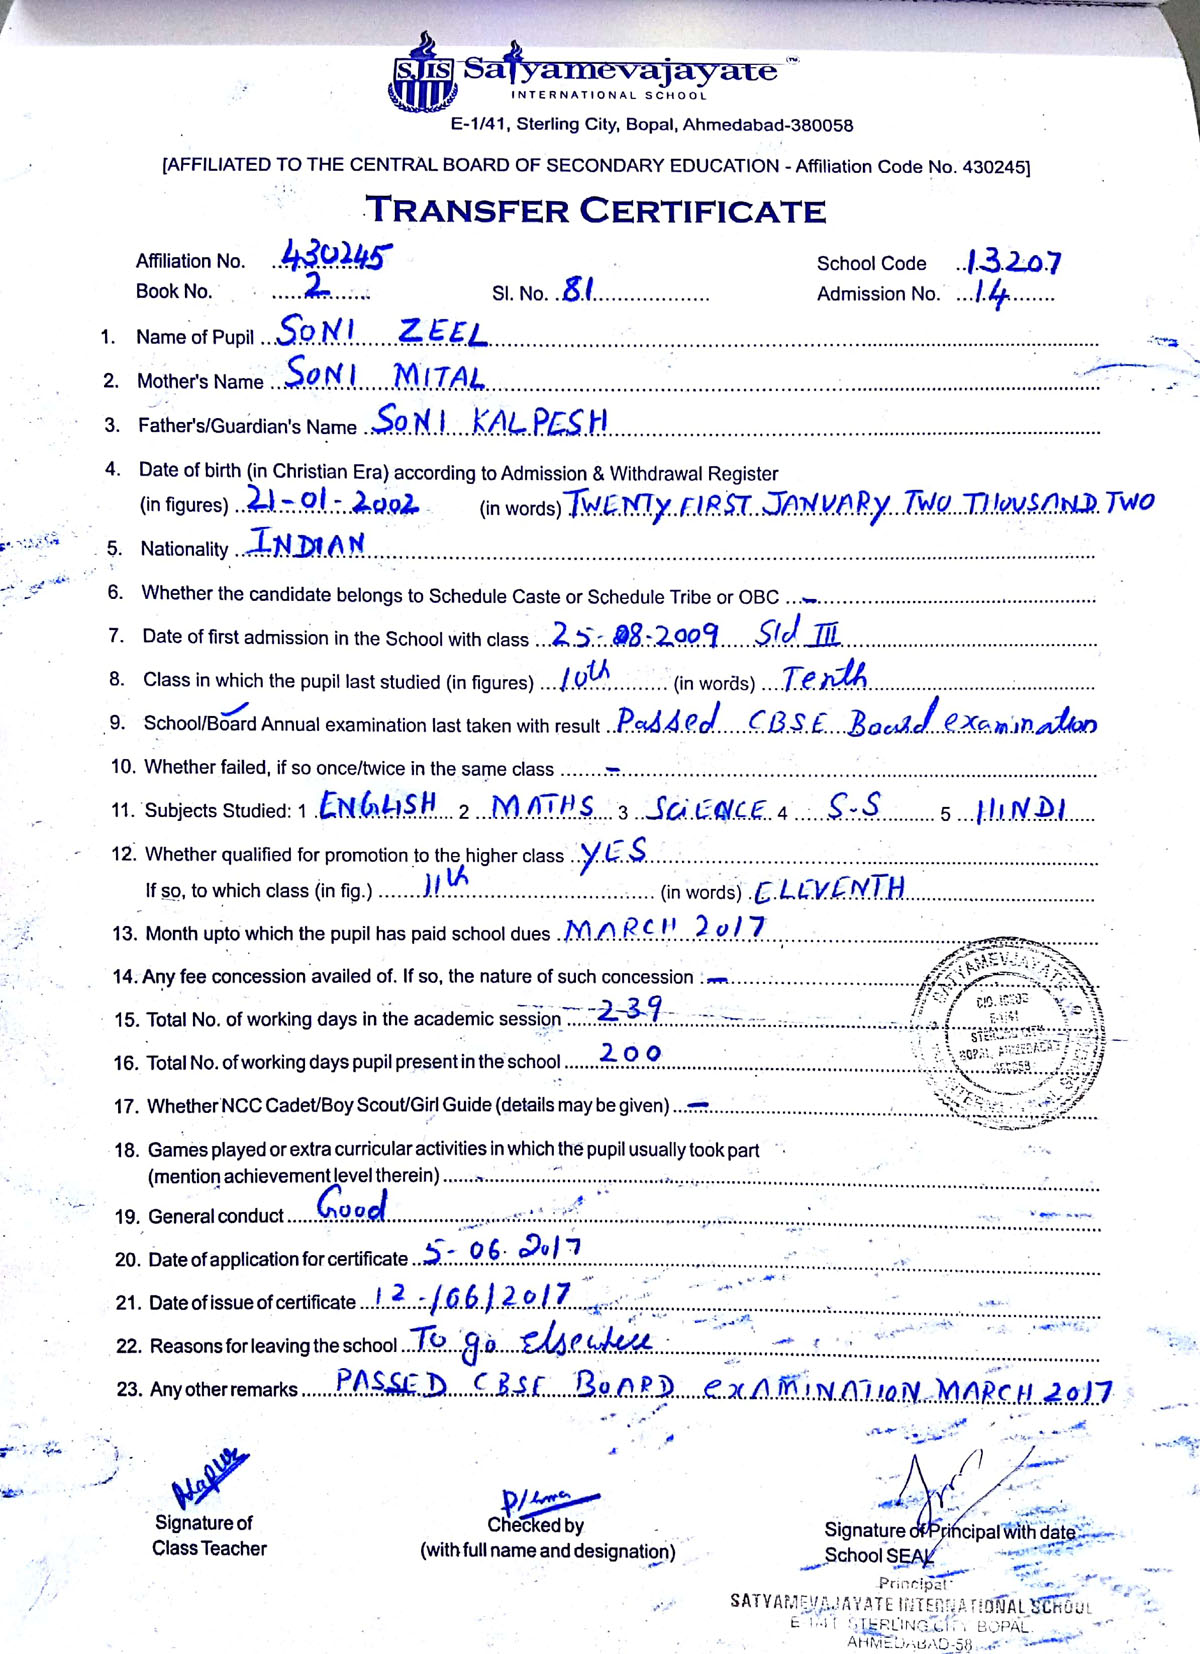 SJIS Satyamevajayate TM
INTERNATIONAL SCHOOL
E-1/41, Sterling City, Bopal, Ahmedabad-380058
[AFFILIATED TO THE CENTRAL BOARD OF SECONDARY EDUCATION - Affiliation Code No. 430245]
TRANSFER CERTIFICATE
Affiliation No. 430245 School Code 13207
Book No. 2 Sl. No. 81 Admission No. 14
1. Name of Pupil SONI ZEEL
2. Mother's Name SONI MITAL
3. Father's/Guardian's Name SONI KALPESH
4. Date of birth (in Christian Era) according to Admission & Withdrawal Register
(in figures) 21-01-2002 (in words) TWENTY FIRST JANUARY TWO THOUSAND TWO
5. Nationality INDIAN
6. Whether the candidate belongs to Schedule Caste or Schedule Tribe or OBC -
7. Date of first admission in the School with class 25-08-2009 Std III
8. Class in which the pupil last studied (in figures) 10th (in words) Tenth
9. School/Board Annual examination last taken with result Passed CBSE Board examination
10. Whether failed, if so once/twice in the same class -
11. Subjects Studied: 1 ENGLISH 2 MATHS 3 SCIENCE 4 S-S 5 HINDI
12. Whether qualified for promotion to the higher class YES
If so, to which class (in fig.) 11th (in words) ELEVENTH
13. Month upto which the pupil has paid school dues MARCH 2017
14. Any fee concession availed of. If so, the nature of such concession : -
15. Total No. of working days in the academic session 239
16. Total No. of working days pupil present in the school 200
17. Whether NCC Cadet/Boy Scout/Girl Guide (details may be given) -
18. Games played or extra curricular activities in which the pupil usually took part
(mention achievement level therein)
19. General conduct Good
20. Date of application for certificate 5-06-2017
21. Date of issue of certificate 12-/06/2017
22. Reasons for leaving the school To go Elsewhere
23. Any other remarks PASSED CBSE BOARD EXAMINATION MARCH 2017
SATYAMEVJAYATE INTERNATIONAL SCHOOL
STERLING CITY
BOPAL, AHMEDABAD
Signature of Checked by Signature of Principal with date
Class Teacher (with full name and designation) School SEAL
Principal
SATYAMEVAJAYATE INTERNATIONAL SCHOOL
E 1/41 STERLING CITY BOPAL
AHMEDABAD-58